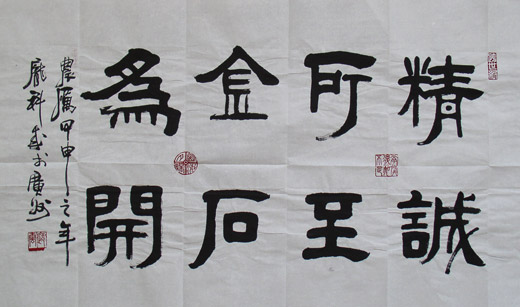 精誠
所至
金石
為開
農曆甲申之年
龐科書於廣州